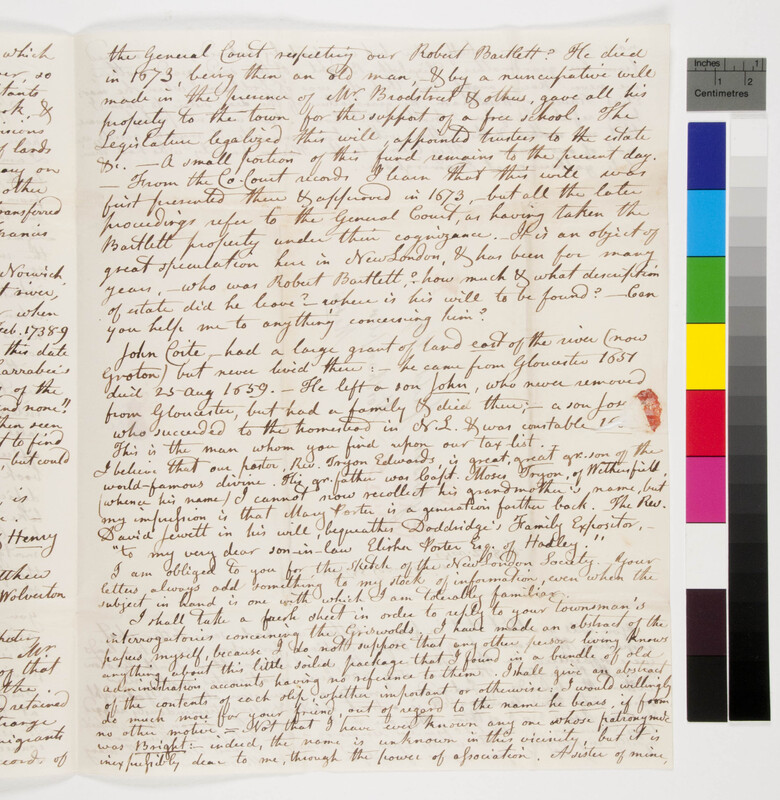 which
er, so
itants
rk, &
isions
f lands
any on
other
transferred
rancis
Norwich,
t river,
when
Feb. 1738-9
this date
Larrabee's
of the
and none."
then seen
t to find
, but could
is
e. —
y Henry
tthew
Wolverton
hotey
— Mr
on that
the
d retained
trange
migrants
ecords of
the General Court respecting our Robert Bartlett? He died
in 1673, being then an old man, & by a nuncupative will
made in the presence of Mr Bradstreet & others, gave all his
property to the town for the support of a free school. The
Legislature legalized this will, appointed trustees to the estate
&c. — A small portion of this fund remains to the present day.
— From the Co. Court records I learn that this will was
first presented there & approved in 1673, but all the later
proceedings refer to the General Court, as having taken the
Bartlett property under their cognizance. It is an object of
great speculation here in New London, & has been for many
years, — who was Robert Bartlett,? how much & what description
of estate did he leave? — where is his will to be found? — Can
you help me to anything concerning him?
John Coite — had a large grant of land east of the river (now
Groton) but never lived there: — he came from Gloucester 1651
died 25 Aug 1659. — He left a son John, who never removed
from Gloucester, but had a family & died there; — a son Jos
who succeeded to the homestead in N.L. & was constable 16
This is the man whom you find upon our tax list.
I believe that our pastor, Rev. Tryon Edwards, is great, great gr. son of the
world-famous divine. His gr. father was Capt. Moses Tryon, of Wethersfield,
(whence his name) I cannot now recollect his grandmother's name, but
my impression is that Mary Porter is a generation farther back. The Rev.
David Jewett in his will, bequeaths Doddridge's Family Expositor, —
"to my very dear son-in-law Elisher Porter Esq. of Hadley."
I am obliged to you for the sketch of the New London Society. Your
letters always add something to my stock of information, even when the
subject in hand, is one with which I am tolerably familiar.
I shall take a fresh sheet in order to reply to your townsman's
interrogatories concerning the Griswolds. I have made an abstract of the
papers myself, because I do not suppose that any other person living knows
anything about this little soiled package that I found in a bundle of old
administration accounts having no reference to them. I shall give an abstract
of the contents of each slip, whether important or otherwise; I would willingly
do much more for your friend, out of regard to the name he bears, if from
no other motive = Not that I have ever known any one whose patronymic
was Bright: — indeed, the name is unknown in this vicinity, but it is
inexpressibly dear to me, through the power of association. A sister of mine,
Inches 1
1 2
Centimetres